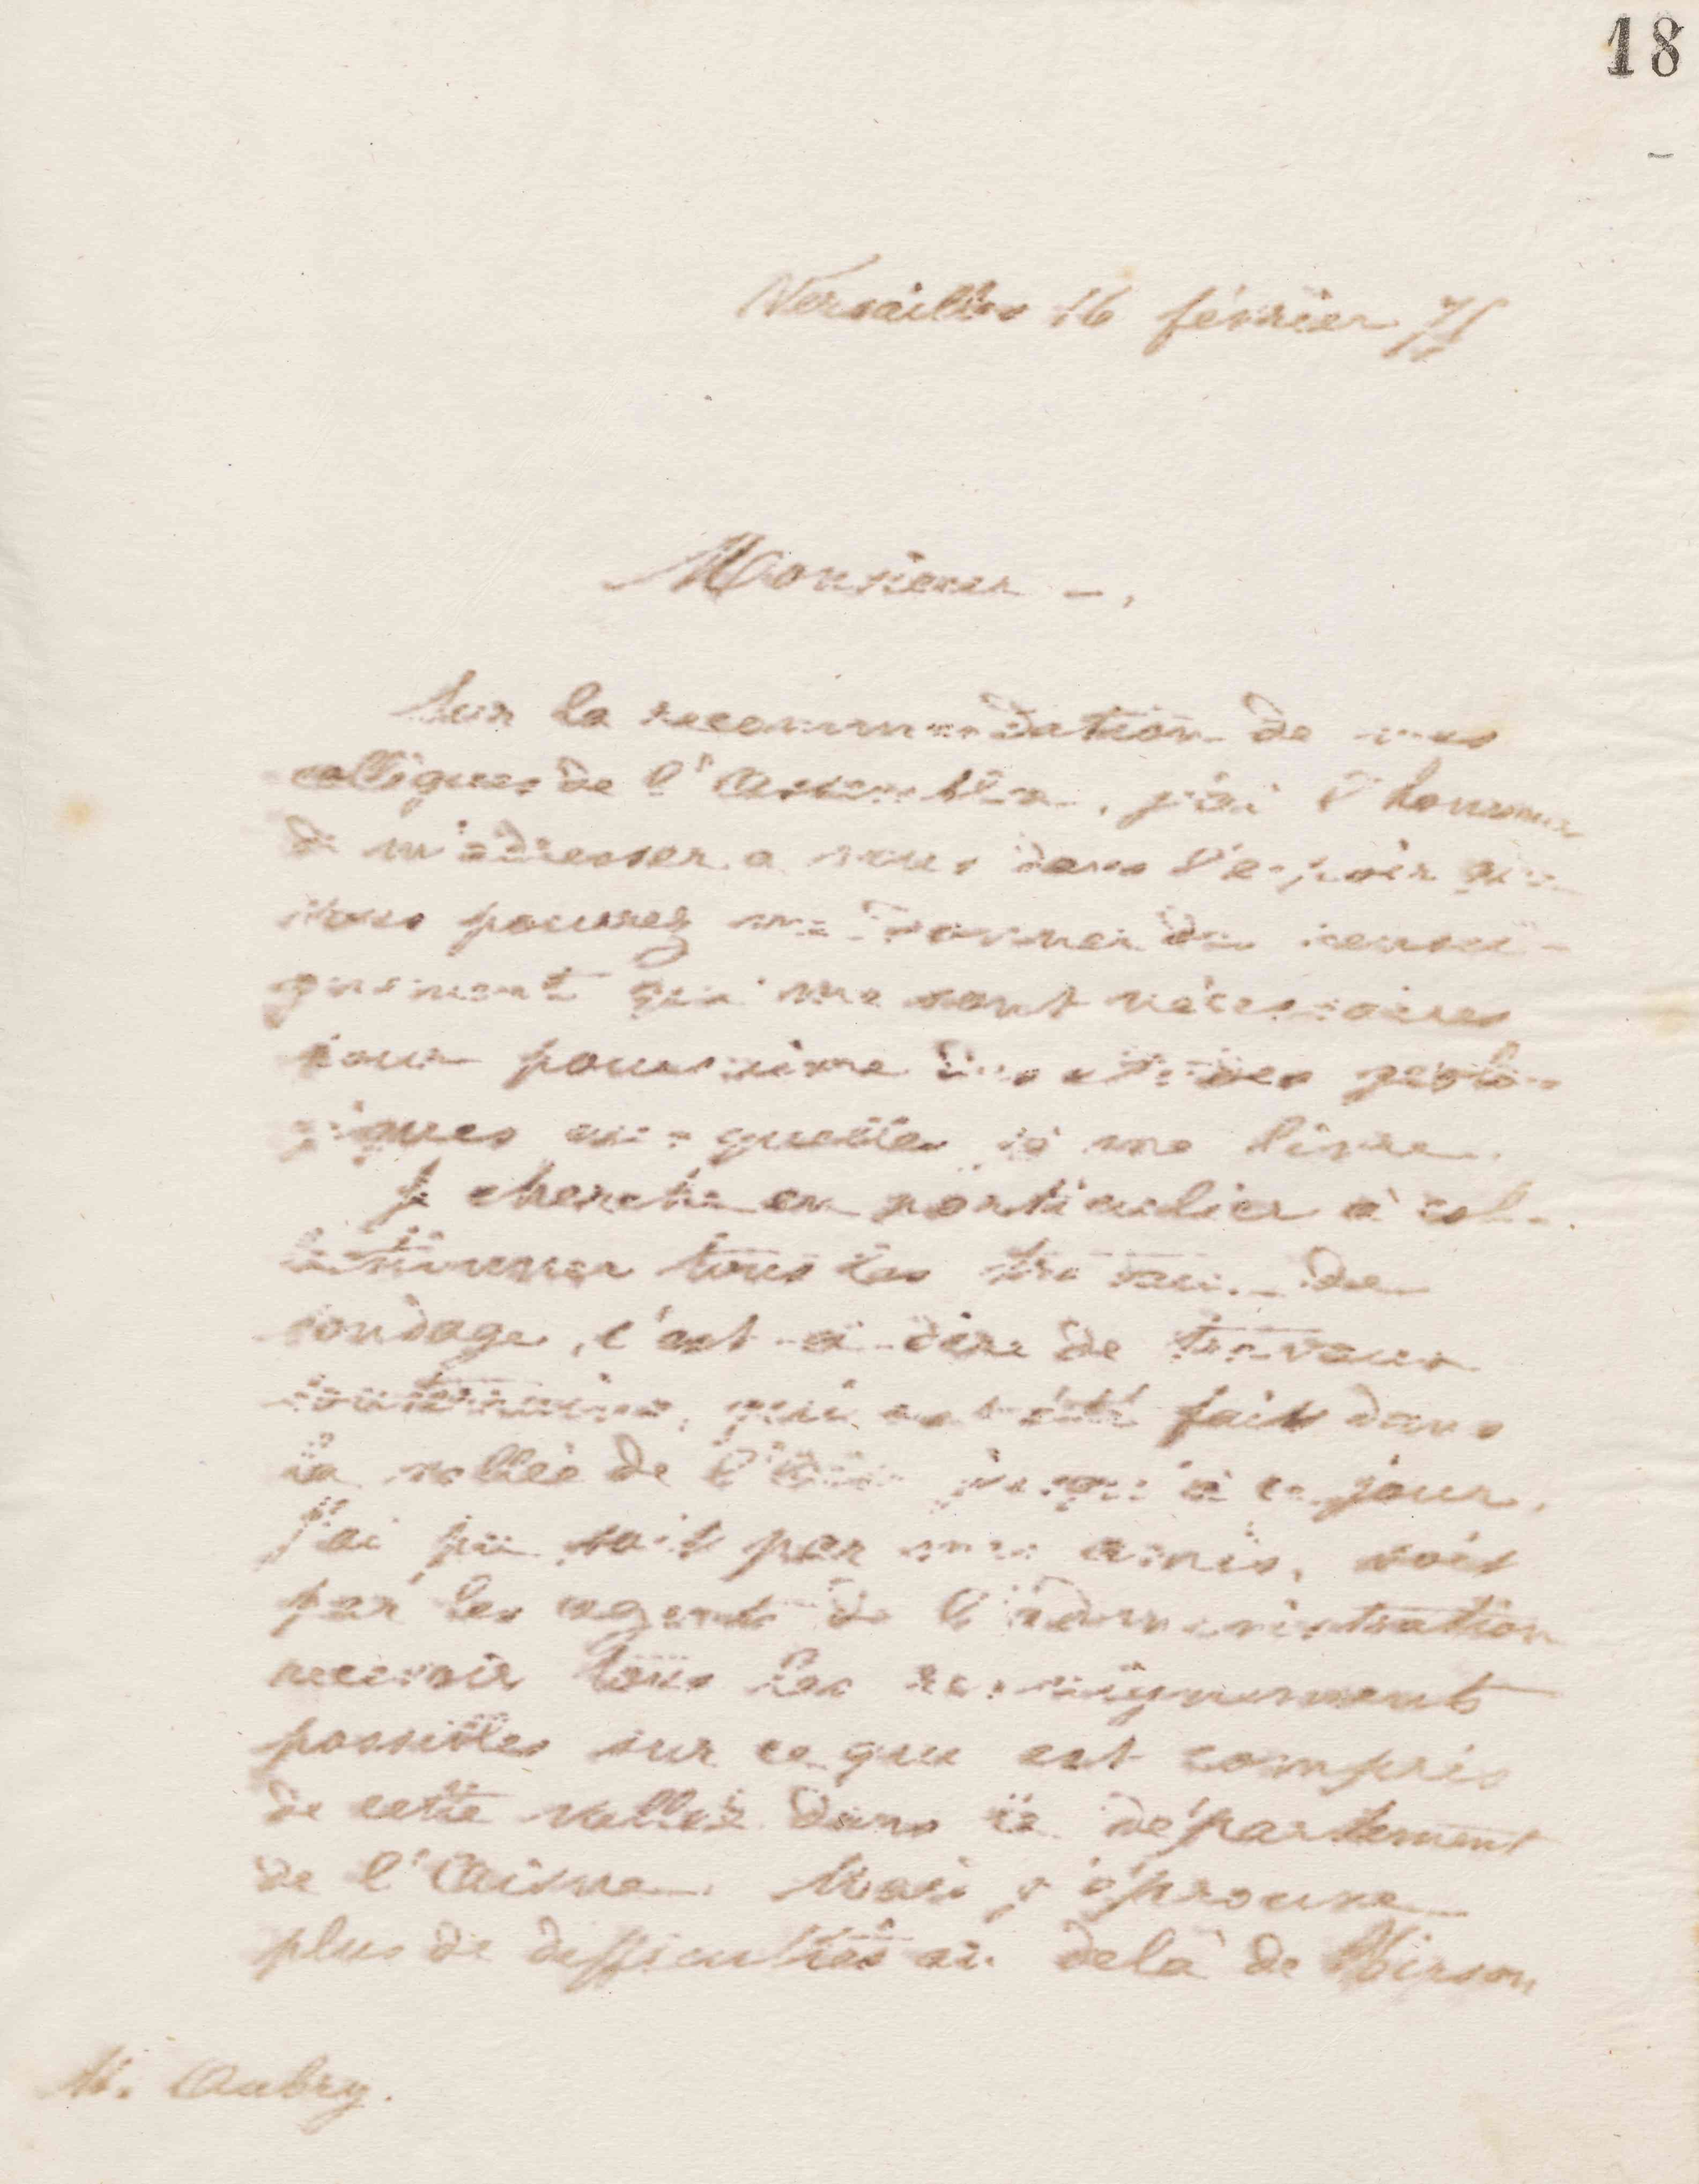 18
Versailles 16 février 75
Monsieur -,
Sur la recommandation de mes
collègues de l'Assemblée, j'ai l'honneur
de m'adresser a vous dans l'espoir que
vous pourrez me donner des rensei-
gnement qui me sont nécessaires
pour poursuivre des études géolo-
giques auxquelles je me livre.
Je cherche en particulier à col-
lationner tous les travaux de
sondage, c'est-à-dire de travaux
souterrains, qui ont été faits dans
la vallée de l'Oise jusqu'à ce jour.
J'ai pu soit par mes amis, soit
par les agents de l'administration
recevoir tous les renseignements
possibles sur ce que est compris
de cette vallée dans le département
de l'Aisne. Mais j'éprouve
plus de difficultés au delà de Hirson
M. Aubry.